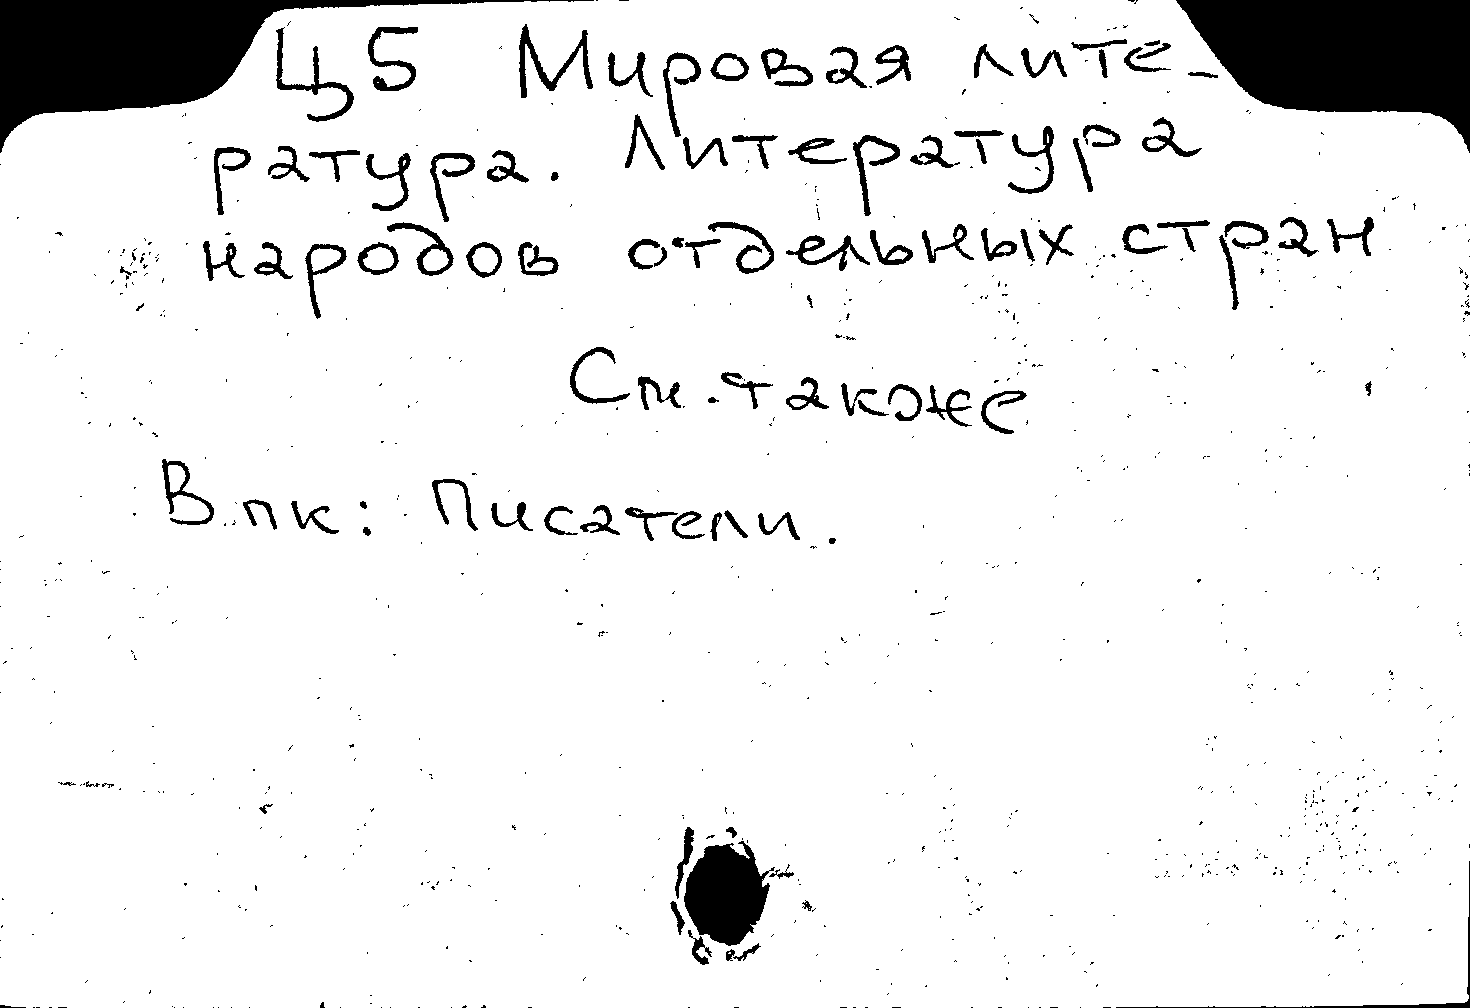 Ц5 Мировая лите-
ратура. Литература
народов отдельных стран
См. также
В пк: Писатели.